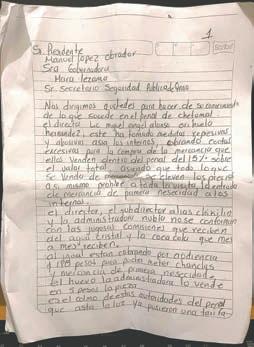 1
Sr. Presidente
Manuel Lopez obrador
Sra Gobernadora
Mara lezama
Sr. Secretario Seguridad Publica de Qroo
Nos dirigimos a ustedes para hacer de su conocimiento
de lo que sucede en el penal de chetumal
el director
hernandez, este ha tomado medidas represivas
y abusivas asia los internos, cobrando cuotas
excesivas para la compra de la mercancia que
ellos venden dentro del penal del 15% sobre
el valor total, asiendo que todo lo que
se venda de eleven los precios
a si mismo prohibe a toda la visita la entrada
de mercancia de primera nesecidad a los
internos.
el director, el subdirector alias
y la administradora noble no se conforman
con las jugosas comisiones que reciben
del agua cristal y la coca cola que mes
a mes reciben.
al igual estan cobrando por audiencia
y pesos para poder meter chanclas
y mercancia de primera nesecidad
el huevo la administradora lo vende
en 5 pesos la pieza
es el colmo de estas autoridades del penal
que asta la luz ya pusieron una tarifa